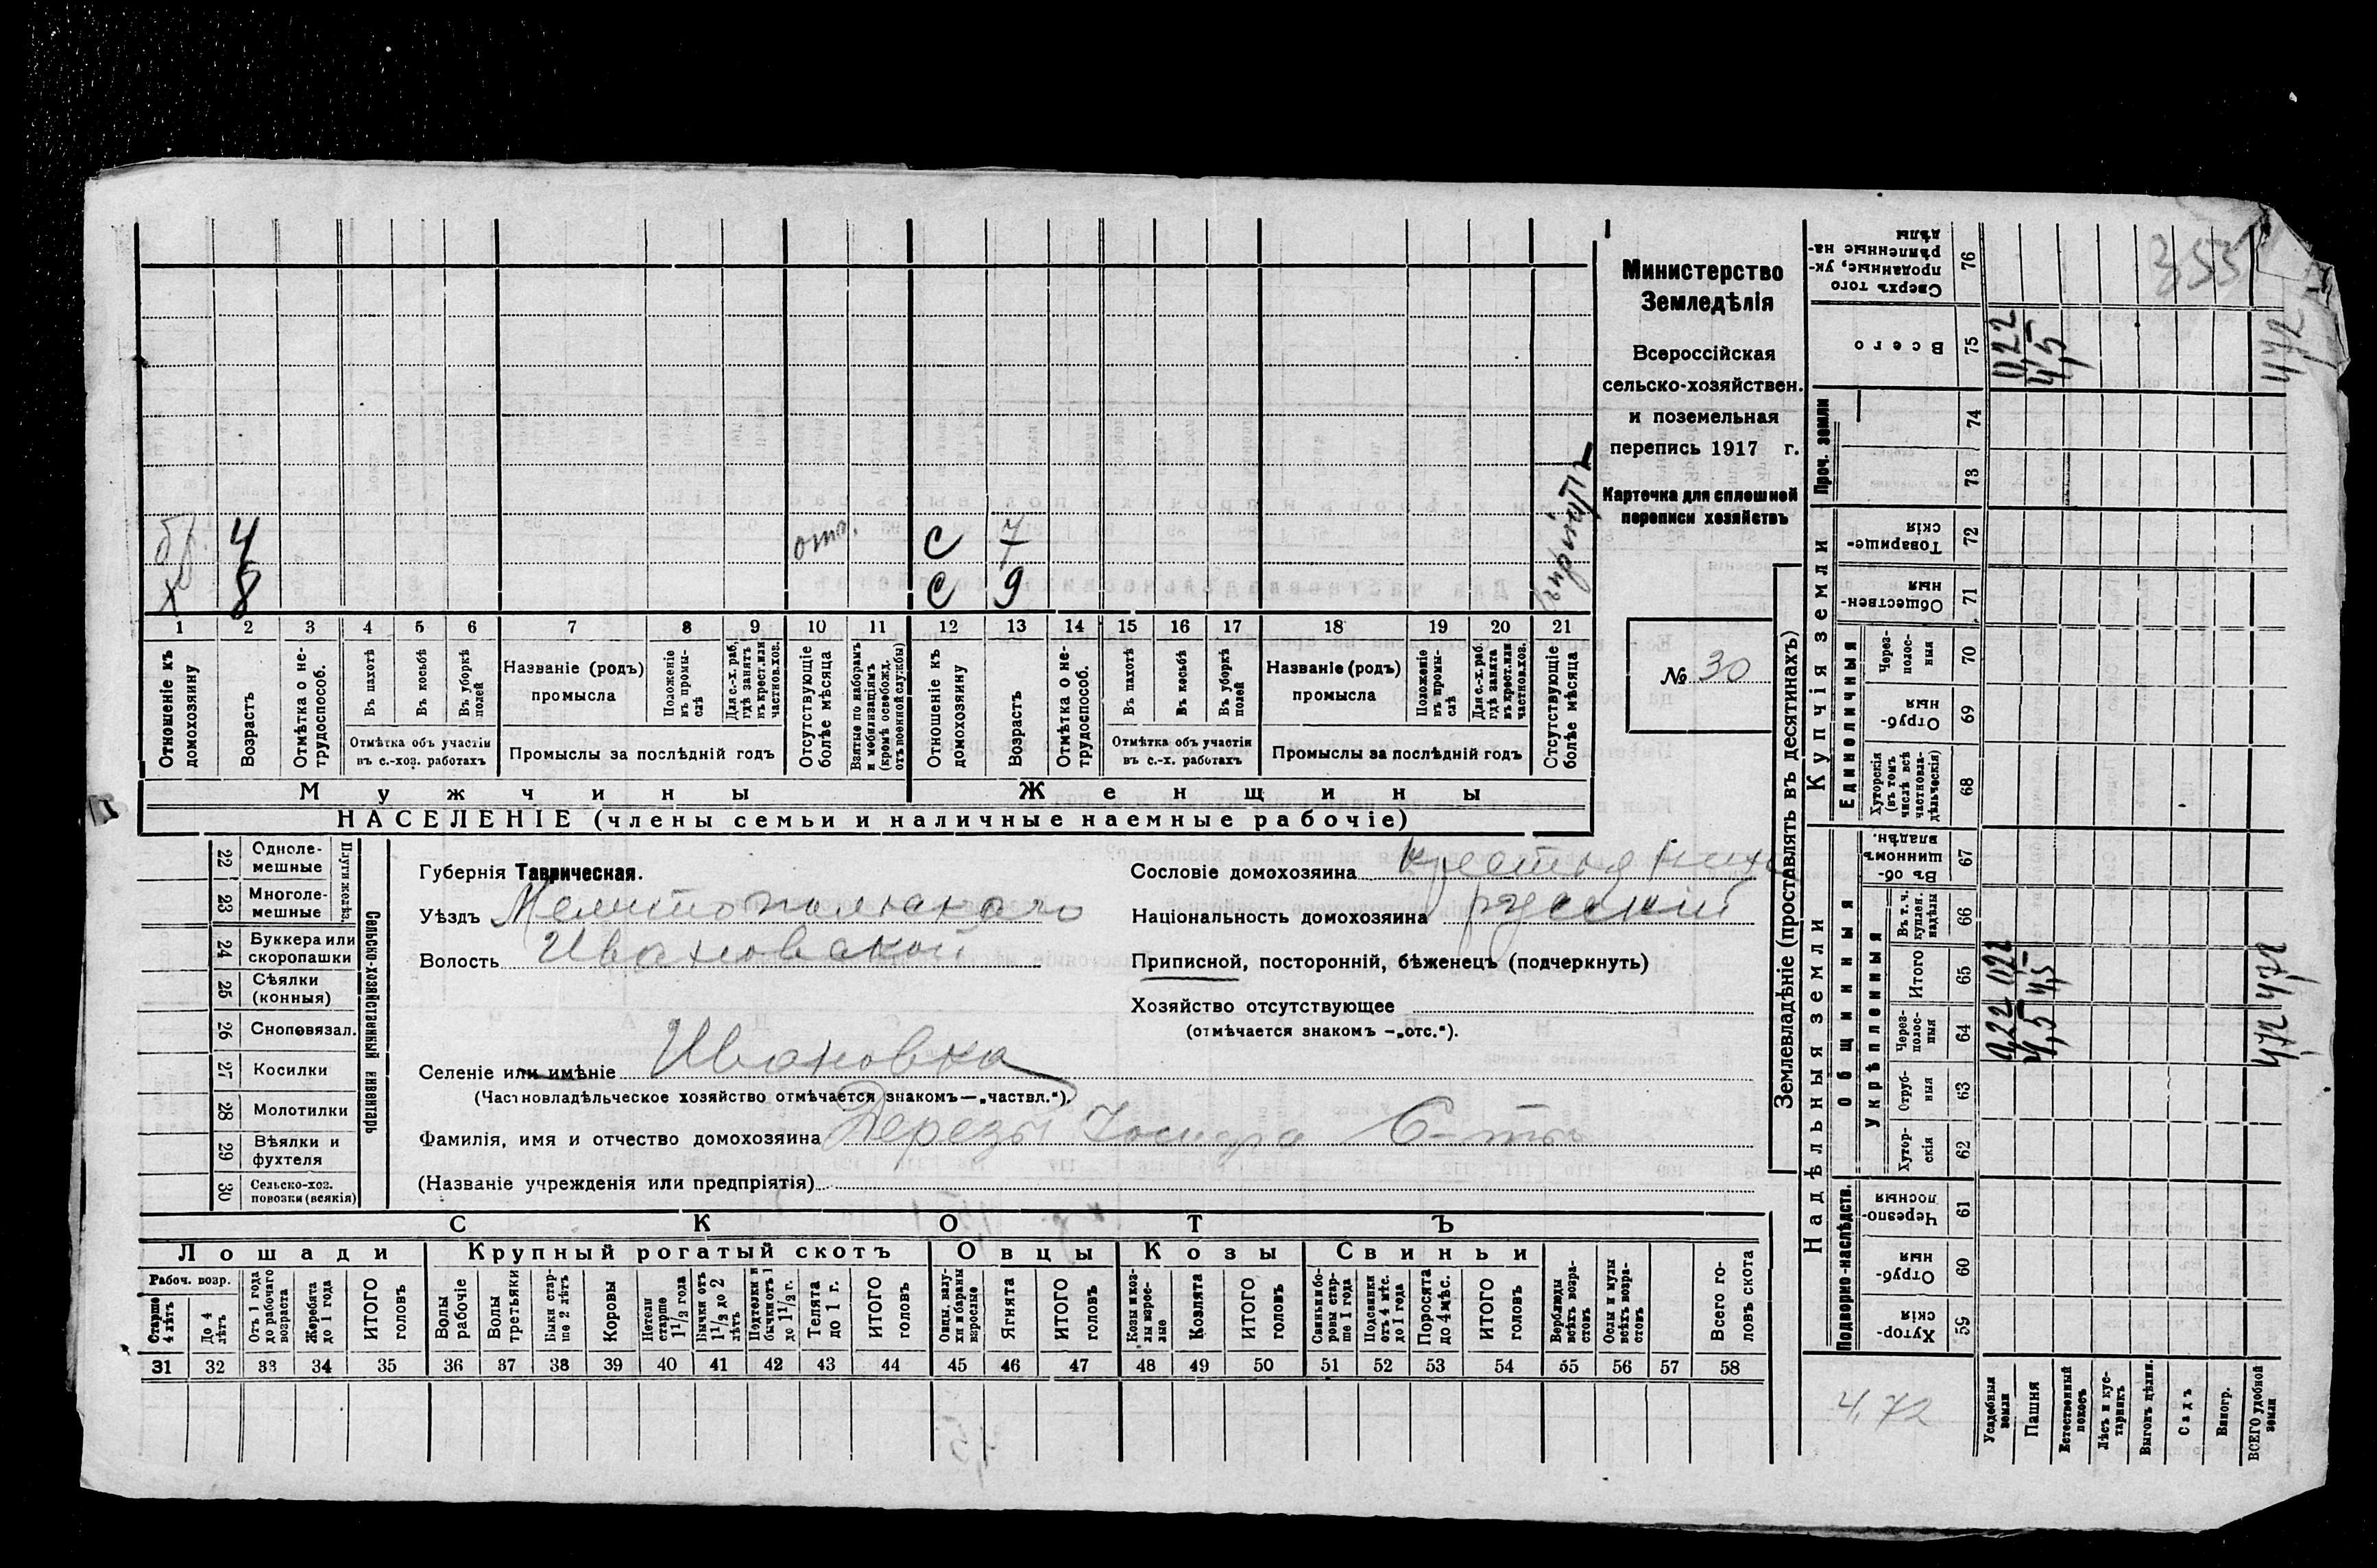 Министерство
Земледѣлія
Всероссійская
сельско-хозяйствен.
и поземельная
перепись 1917 г.
Карточка для сплошной
переписи хозяйствъ
№ 30
бр. 4 отл. С 7
х 8 С 9
1 2 3 4 5 6 7 8 9 10 11 12 13 14 15 16 17 18 19 20 21
Отношеніе къ домохозяину
Возрастъ
Отмѣтка о нетрудоспособ.
Въ пахотѣ
Въ косьбѣ
Въ уборкѣ полей
Отмѣтка объ участіи въ с.-хоз. работахъ
Названіе (родъ) промысла
Положеніе въ промыслѣ
Для с.-х. раб, гдѣ занятъ въ крест. или частнов. хоз.
Промыслы за послѣдній годъ
Отсутствующіе болѣе мѣсяца
Взятые по наборамъ и мобилизаціямъ (кромѣ освобожд. отъ военной службы)
Отношеніе къ домохозяину
Возрастъ
Отмѣтка о нетрудоспособ.
Въ пахотѣ
Въ косьбѣ
Въ уборкѣ полей
Отмѣтка объ участіи въ с.-х. работахъ
Названіе (родъ) промысла
Положеніе въ промыслѣ
Для с.-х. раб. гдѣ занята въ крест. или частнов. хоз.
Промыслы за послѣдній годъ
Отсутствующіе болѣе мѣсяца
Мужчины Женщины
НАСЕЛЕНІЕ (члены семьи и наличные наемные рабочіе)
22 Однолемешные
23 Многолемешные
Плуги желѣз.
24 Буккера или скоропашки
25 Сѣялки (конныя)
26 Сноповязал.
27 Косилки
28 Молотилки
29 Вѣялки и фухтеля
30 Сельско-хоз. повозки (всякія)
Сельско-хозяйственный инвентарь
Губернія Таврическая.
Уѣздъ Мелитопольскаго
Волость Ивановской
Сословіе домохозяина крестьянинъ
Національность домохозяина русскій
Приписной, посторонній, бѣженецъ (подчеркнуть)
Хозяйство отсутствующее
(отмѣчается знакомъ —„отс.“).
Селеніе или имѣніе Ивановка
(Частновладѣльческое хозяйство отмѣчается знакомъ—„частвл.“).
Фамилія, имя и отчество домохозяина Дерезы С-ты
(Названіе учрежденія или предпріятія)
СКОТЪ
Лошади Крупный рогатый скотъ Овцы Козы Свиньи
Рабоч. возр.
Старше 4 лѣтъ
До 4 лѣтъ
Отъ 1 года до рабочаго возраста
Жеребята до 1 года
ИТОГО головъ
Волы рабочіе
Волы третьяки
Быки старше 2 лѣтъ
Коровы
Нетели старше 1 1/2 года
Бычки отъ 1 1/2 до 2 лѣтъ
Подтелки и бычки отъ 1 до 1 1/2 г.
Телята до 1 г.
ИТОГО головъ
Овцы, валухи и бараны взрослые
Ягнята
ИТОГО головъ
Козы и козлы взрослые
Козлята
ИТОГО головъ
Свиньи и боровы старше 1 года
Подсвинки отъ 4 мѣс. до 1 года
Поросята до 4 мѣс.
ИТОГО головъ
Верблюды всѣхъ возрастовъ
Ослы и мулы всѣхъ возрастовъ
Всего головъ скота
31 32 33 34 35 36 37 38 39 40 41 42 43 44 45 46 47 48 49 50 51 52 53 54 55 56 57 58
Землевладѣніе (проставлять въ десятинахъ)
Надѣльныя земли Купчія земли Проч. земли
Подворно-наслѣдств.
Общинныя
Укрѣпленныя
Единоличныя
59 Хуторскія
60 Отрубныя
61 Черезполосныя
62 Хуторскія
63 Отрубныя
64 Черезполосныя
65 Итого
66 Въ т. ч. куплен. надѣлы
67 Въ общинномъ владѣн.
68 Хуторскія (въ томъ числѣ всѣ частновладѣльческія)
69 Отрубныя
70 Черезполосныя
71 Общественныя
72 Товарищескія
73
74
75 Всего
76 Сверхъ того проданные, укрѣпленные надѣлы
Усадебныя земли 0,22 0,22 0,22
Пашня 4,5 4,5 4,5
Естественный покосъ
Лѣсъ и кустарникъ
Выгонъ цѣлин.
Садъ
Виногр.
ВСЕГО удобной земли 4,72 4,72 4,72
4,72